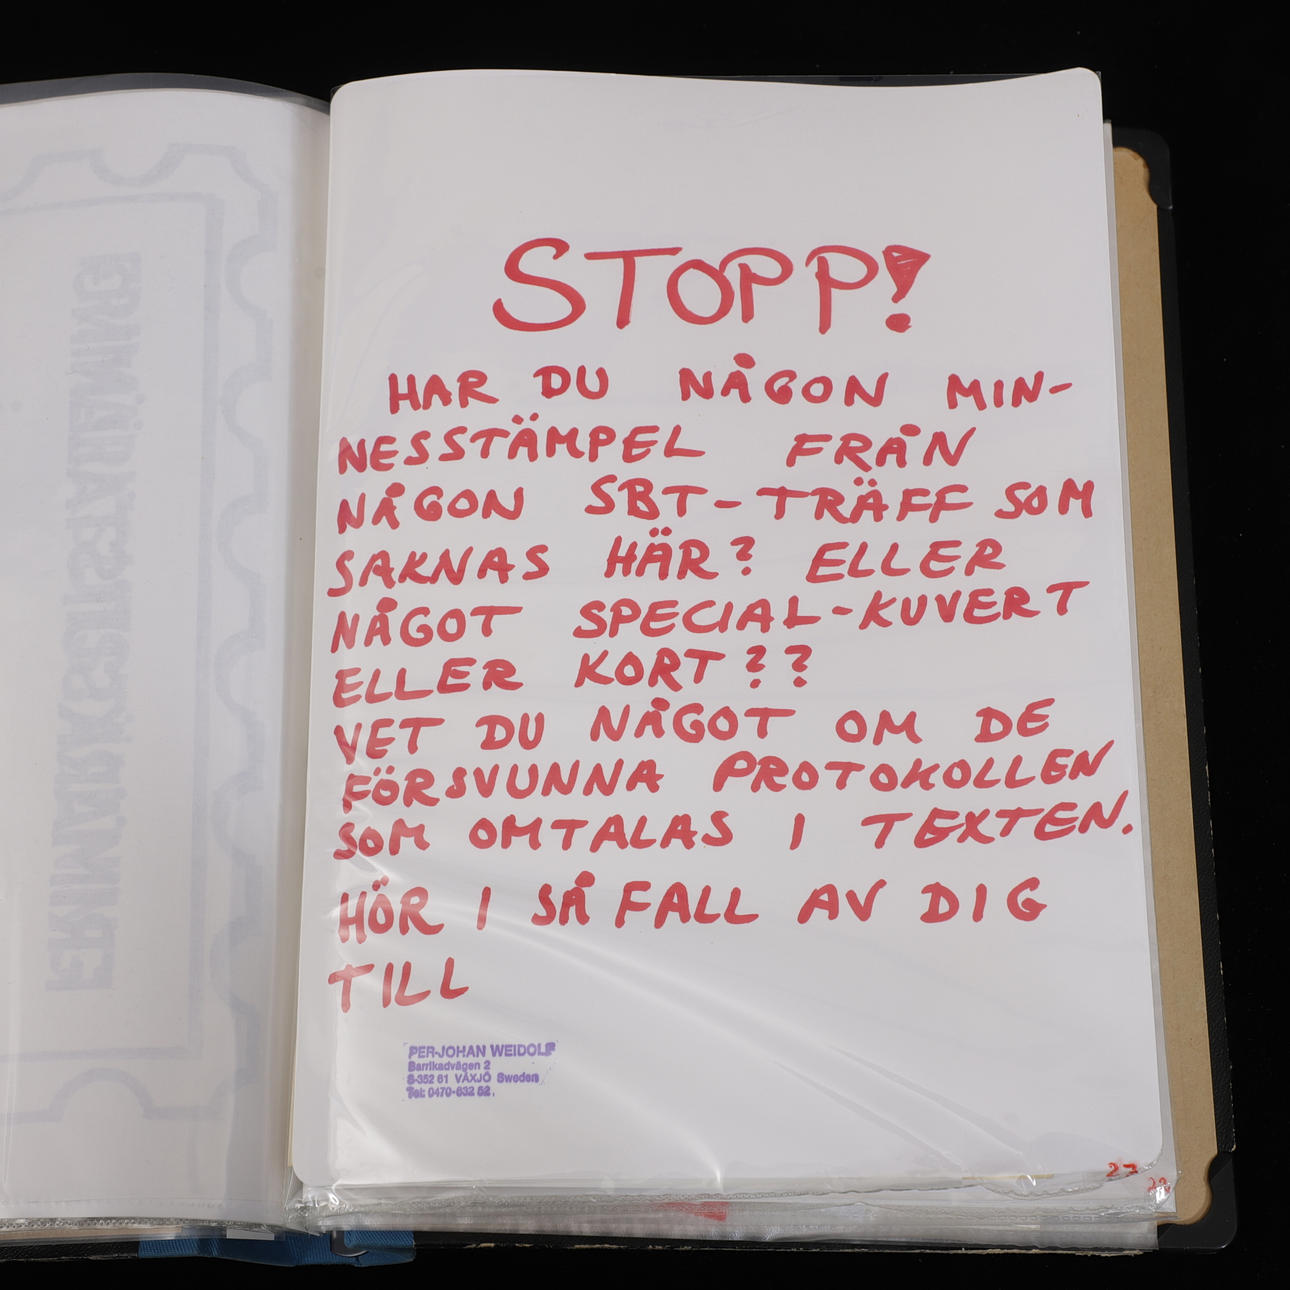 STOPP!
HAR DU NÅGON MIN-
NESSTÄMPEL FRÅN
NÅGON SBT-TRÄFF SOM
SAKNAS HÄR? ELLER
NÅGOT SPECIAL-KUVERT
ELLER KORT??
VET DU NÅGOT OM DE
FÖRSVUNNA PROTOKOLLEN
SOM OMTALAS I TEXTEN.
HÖR I SÅ FALL AV DIG
TILL
PER-JOHAN WEIDOLF
Barrikadvägen 2
S-352 61 VÄXJÖ Sweden
Tel: 0470-632 52.
27